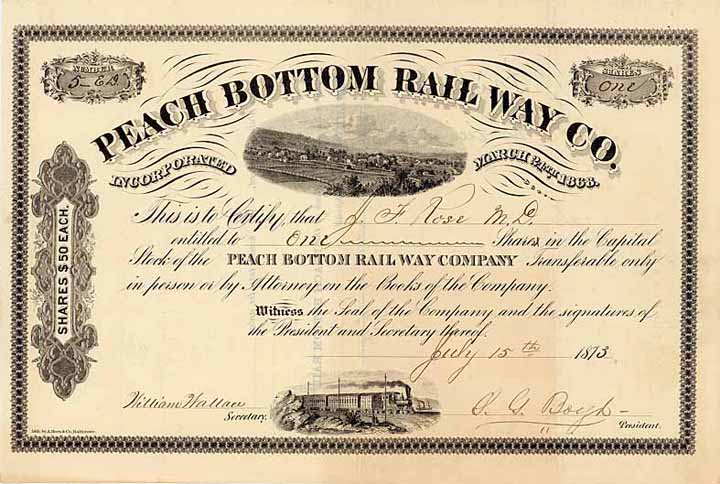 NUMBER
5 - E.D.
SHARES
One
PEACH BOTTOM RAIL WAY CO.
INCORPORATED
MARCH 24TH 1868.
SHARES $50 EACH.
This is to Certify, that J. F. Rose M.D.
entitled to One Shares in the Capital
Stock of the PEACH BOTTOM RAIL WAY COMPANY Transferable only
in person or by Attorney on the Books of the Company.
Witness the Seal of the Company and the signatures of
the President and Secretary thereof.
July 15th 1873
William Wallace
Secretary.
S. G. Boyd
President.